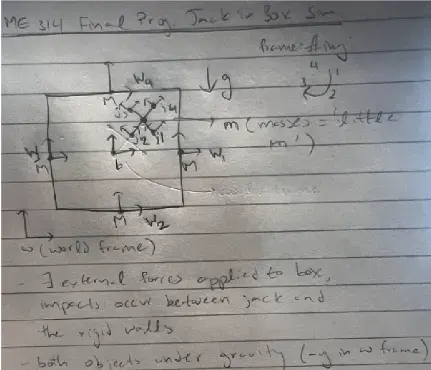 ME 314 Final Proj. Jack in Box Sim
frame-fling
4
3 1
2
W4
g
M
j3 j4
m (masses = 'little
m')
j2 j1
W3
b
M
M
W1
M
W2
w (world frame)
- ∃ external forces applied to box,
impacts occur between jack and
the rigid walls
- both objects under gravity (-y in w frame)